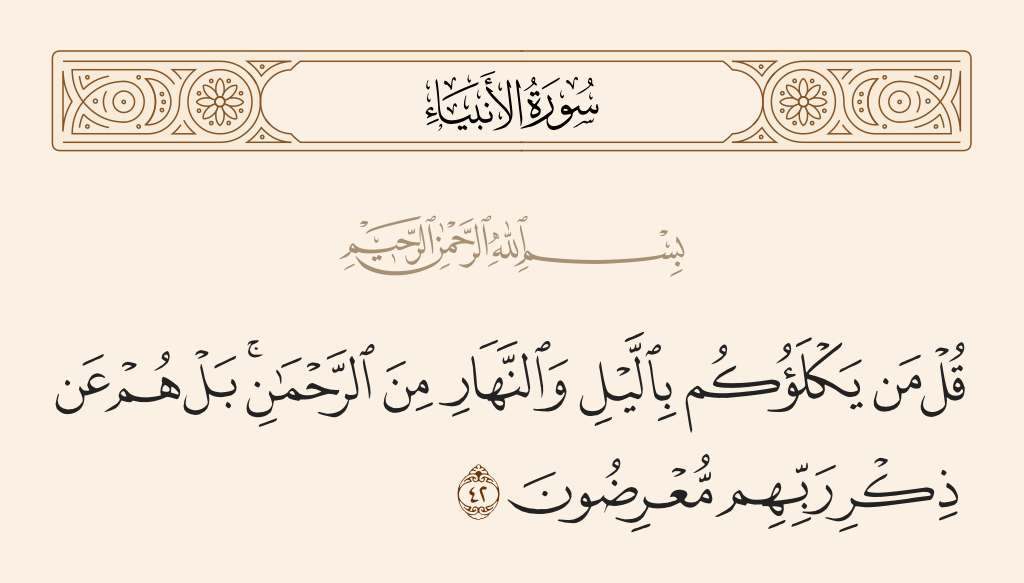 سُورَةُ الأَنبِيَاءِ
بِسْمِ ٱللَّهِ ٱلرَّحْمَٰنِ ٱلرَّحِيمِ
قُلْ مَن يَكْلَؤُكُم بِٱلَّيْلِ وَٱلنَّهَارِ مِنَ ٱلرَّحْمَٰنِ ۚ بَلْ هُمْ عَن
ذِكْرِ رَبِّهِم مُّعْرِضُونَ ٤٢